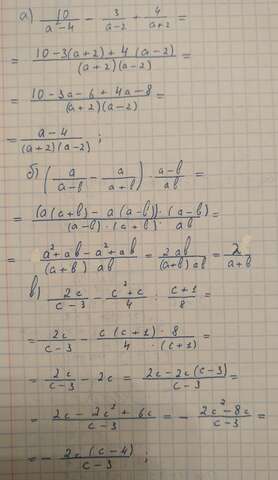 а) 10/(a²-4) - 3/(a-2) + 4/(a+2) =
= (10-3(a+2)+4(a-2))/((a+2)(a-2)) =
= (10-3a-6+4a-8)/((a+2)(a-2)) =
= (a-4)/((a+2)(a-2)) ;
б) (a/(a-b) - a/(a+b)) · (a-b)/(ab) =
= ((a(a+b)-a(a-b))·(a-b))/((a-b)·(a+b)·ab) =
= (a²+ab-a²+ab)/((a+b)ab) = 2ab/((a+b)ab) = 2/(a+b)
в) 2c/(c-3) - (c²+c)/4 : (c+1)/8 =
= 2c/(c-3) - (c(c+1)·8)/(4·(c+1)) =
= 2c/(c-3) - 2c = (2c-2c(c-3))/(c-3) =
= (2c-2c²+6c)/(c-3) = - (2c²-8c)/(c-3) =
= - 2c(c-4)/(c-3) ;